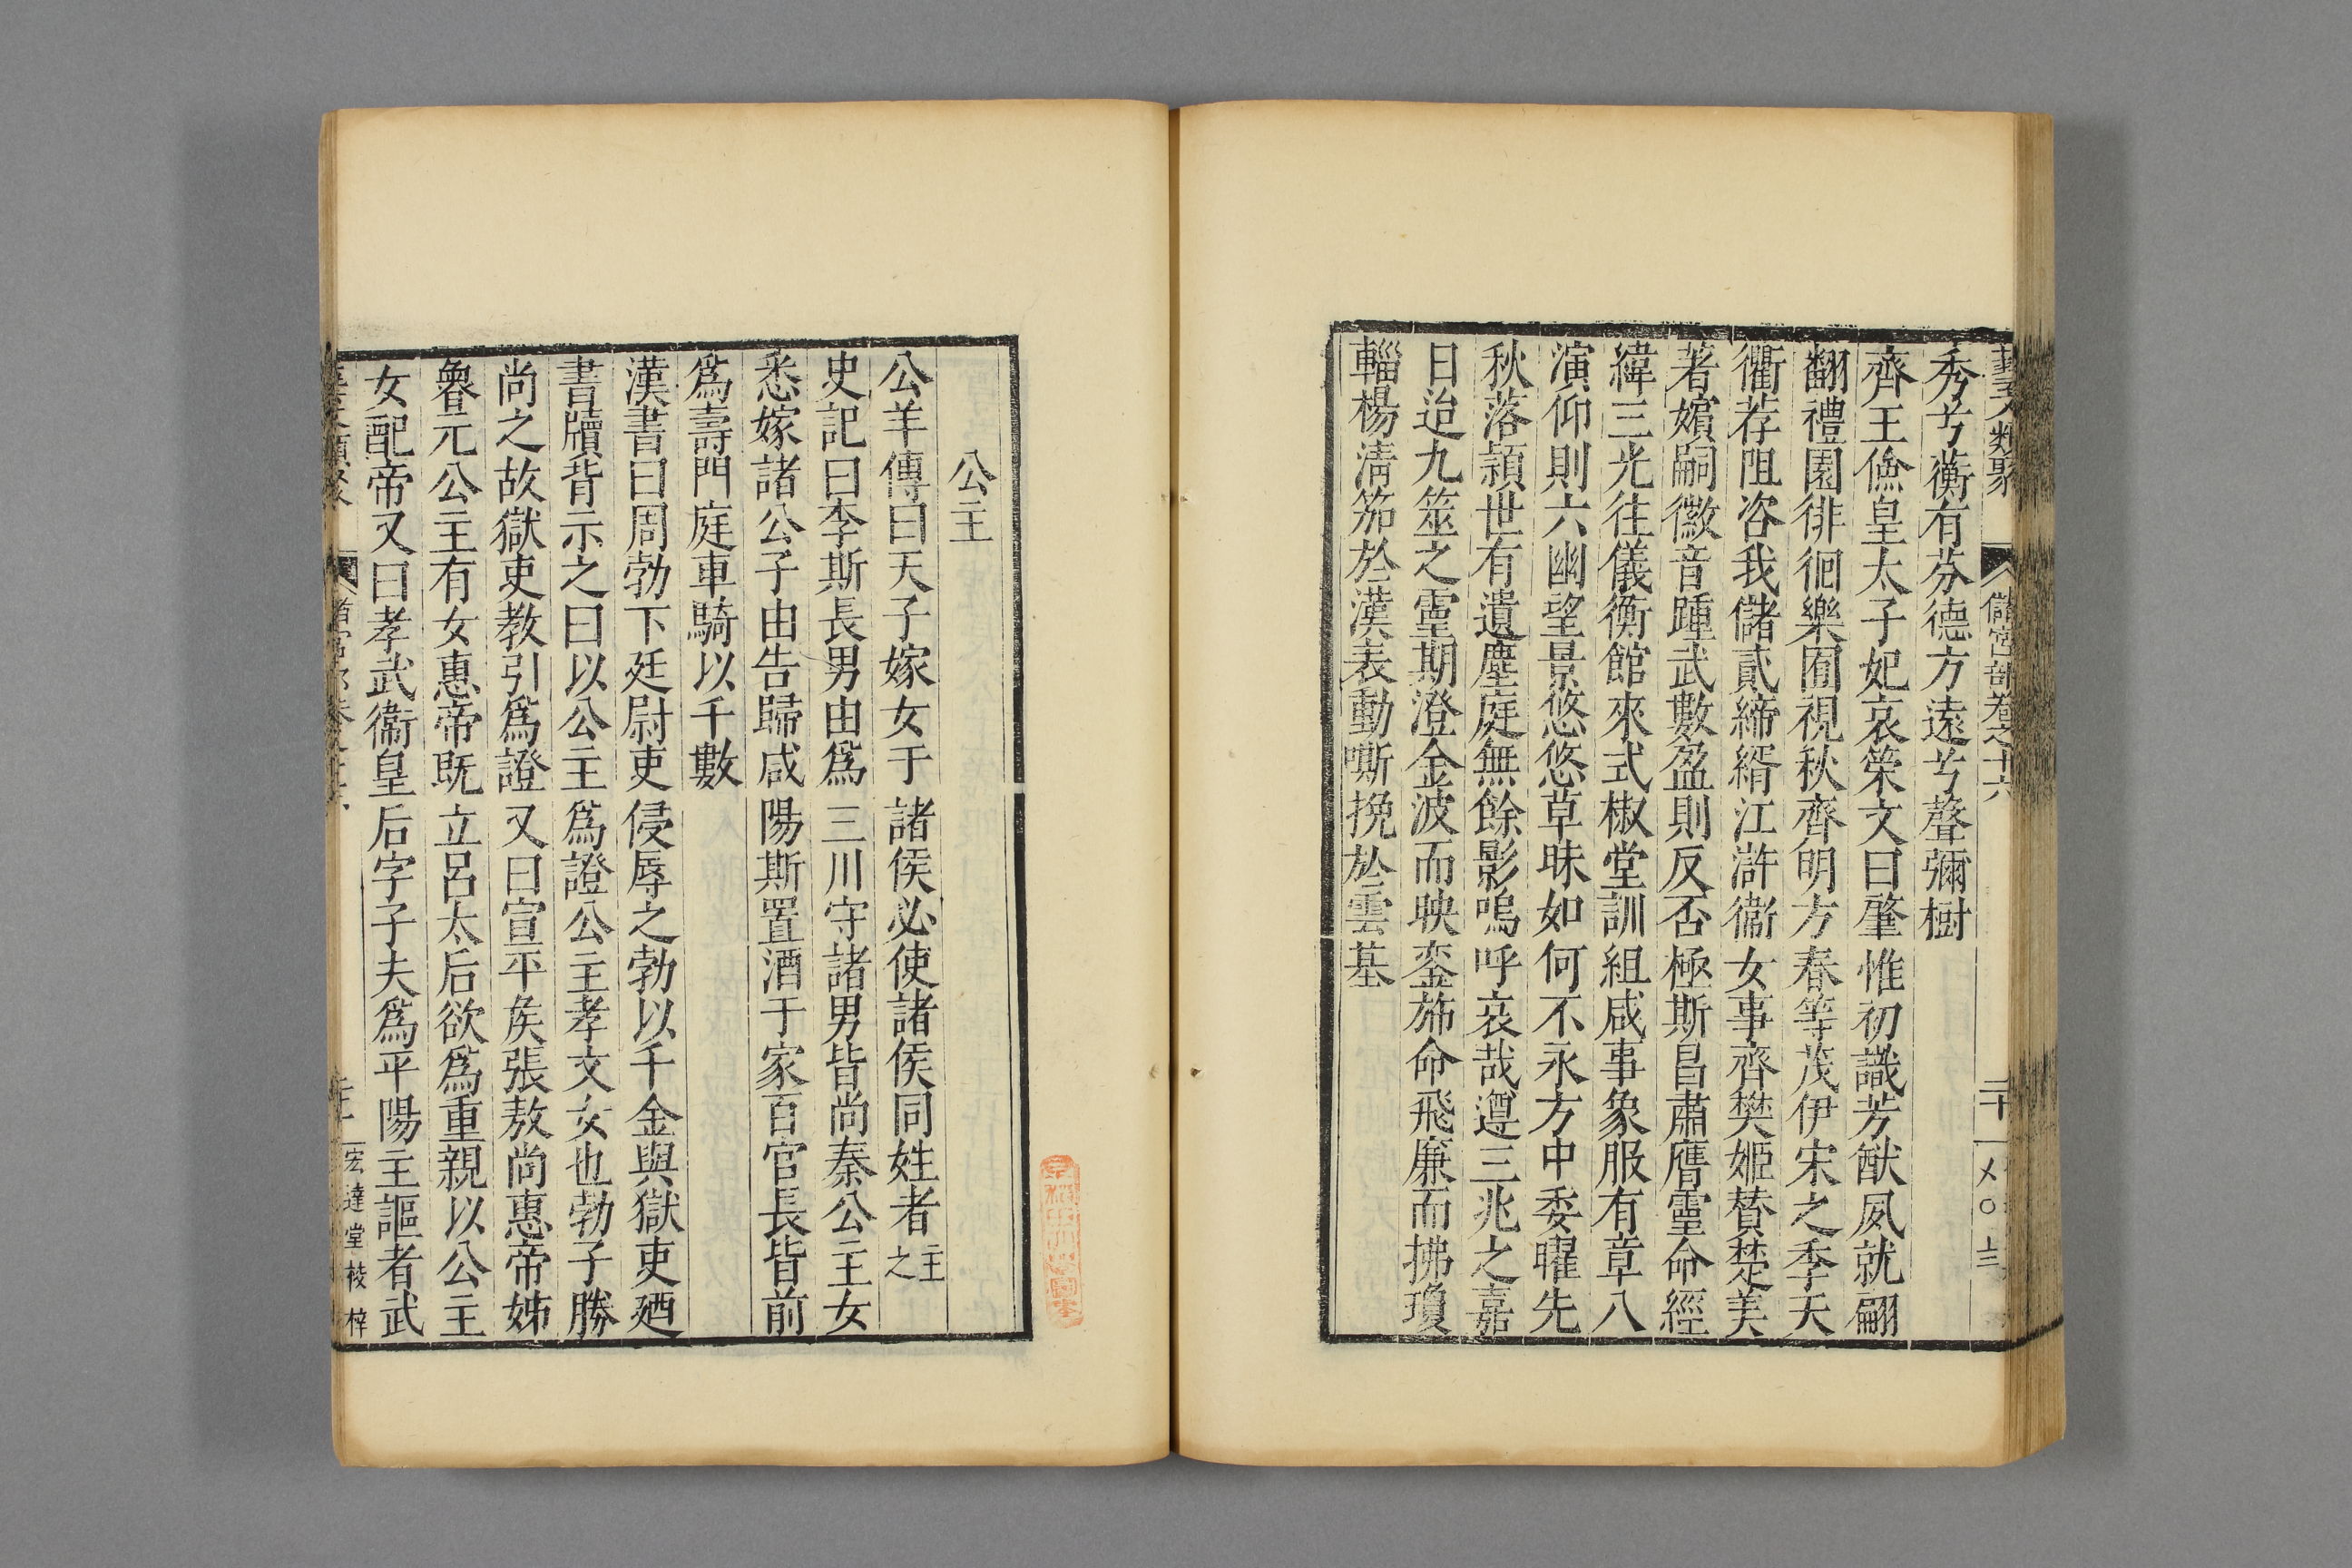 藝文類聚 儲宮部卷之十六 二十 〤〇〨
秀兮蘅有芬德方遠兮聲彌樹
齊王儉皇太子妃哀榮文曰肇惟初識芳猷夙就翩
翻禮園徘徊樂囿視秋齊明方春等茂伊宋之季天
衢荐阻咨我儲貳締緡江滸衞女事齊樊姬賛楚美
著嬪嗣徽音踵武數盈則反否極斯昌肅膺靈命經
緯三光往儀衡館來式椒堂訓組咸事象服有章八
演仰則六幽望景悠悠草昧如何不永方中委曜先
秋落頴世有遺塵庭無餘影嗚呼哀哉遵三兆之嘉
日迨九筮之靈期澄金波而映鑾斾命飛廉而拂瓊
輜楊淸笳於漢表動嘶挽於雲基
公主
公羊傳曰天子嫁女于諸侯必使諸侯同姓者主之
史記曰李斯長男由爲三川守諸男皆尚秦公主女
悉嫁諸公子由告歸咸陽斯置酒于家百官長皆前
爲壽門庭車騎以千數
漢書曰周勃下廷尉吏侵辱之勃以千金與獄吏廼
書牘背示之曰以公主爲證公主孝文女也勃子勝
尚之故獄吏教引爲證又曰宣平侯張敖尚惠帝姊
魯元公主有女惠帝既立呂太后欲爲重親以公主
女配帝又曰孝武衞皇后字子夫爲平陽主謳者武
宏達堂校梓